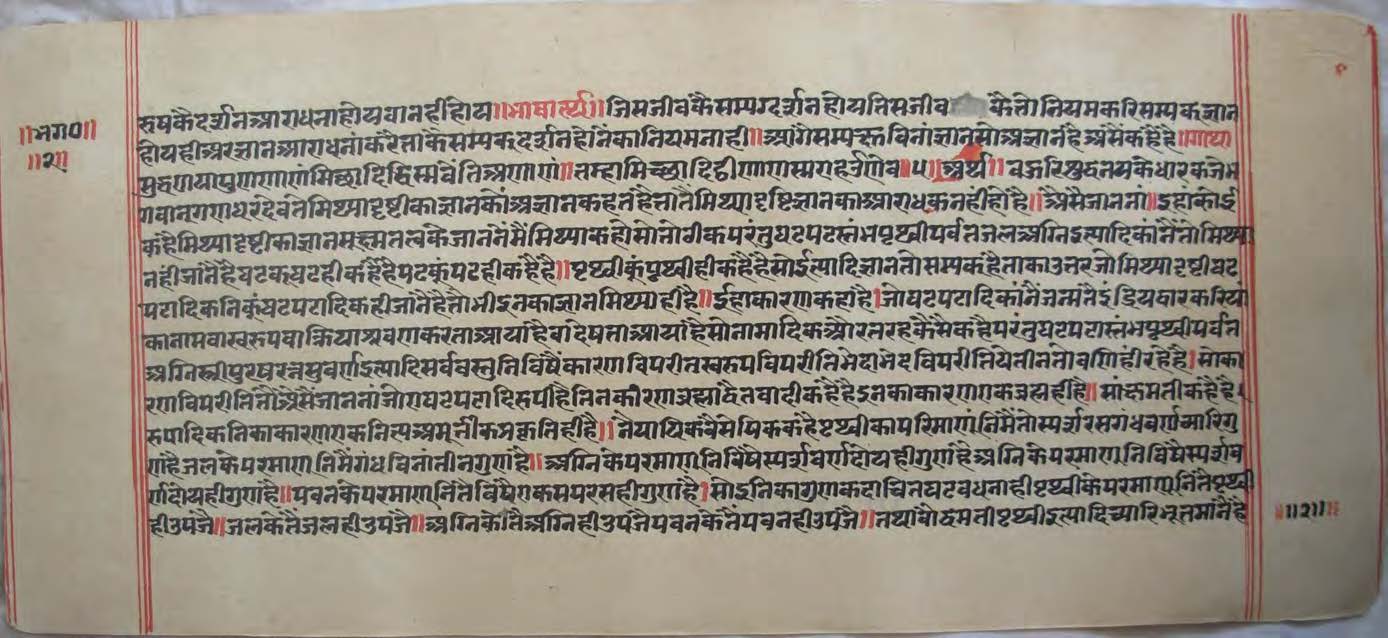 ॥भग०॥
॥२॥
रुषकै दर्शन आराधना होय वा नहीं होय॥भाषार्त्थ॥ जिस जीवकै सम्यग्दर्शन होय तिस जीव कै तो नियमकरि सम्यक् ज्ञान
होय ही अर ज्ञान आराधनां करै ताकै सम्यक् दर्शन होनेंका नियम नाही॥आगैं सम्यक्त विनां ज्ञान सो अज्ञान है अैसैं कहै है॥गाथा
सुद्धणया पुण णाणं मिछादिठिस्स वेंति अणाणं॥तम्हा मिच्छादिट्ठी णाणस्सराहउ णेव॥५॥अर्थ॥ वहुरि शुद्धनयके धारक जे भ
गवान गणधरदेव ते मिथ्यादृष्टीका ज्ञानकों अज्ञान कहत है तातैं मिथ्यादृष्टि ज्ञानका आराधक नहीं हो है॥अैसैं जाननां॥इहां कोई
कहै मिथ्यादृष्टीका ज्ञान सूक्ष्मतत्वके जाननेंमैं मिथ्या कहो सो तो ठीक परंतु घट पट स्तंभ पृथ्वी पर्वत जल अग्नि इत्यादिकांनैं तो मिथ्या
नही जांनै है घटकूं घट ही कहै है पटकूं पट ही कहै है॥पृथ्वीकूं पृथ्वी ही कहै है सो इत्यादि ज्ञान तो सम्यक है ताका उत्तर जो मिथ्यादृष्टी घट
पटादिकनिकूं घटपटादिक ही जांनै है तौभी इनका ज्ञान मिथ्या ही है॥ईहा कारण कहा है।जो घटपटादिकांनैं जन्मतैं इंद्रियद्वारकरि यां
का नाम वा स्वरूप वा क्रिया श्रवण करता आया है वा देषता आया है सो नामादिक और तरह कैसै कहै परंतु घटपटा स्तंभ पृथ्वी पर्वत
अग्नि स्त्री पुरुष रत्न सुवर्ण इत्यादि सर्व वस्तुनिविषैं कारण विपरीत स्वरूप विपरीति भेदाभेद विपरीति ये तीन तो वणि हीं रहै है।सो का
रण विपरीति तौ अैसैं जाननां जो ए घटपटादि रूपी है तिनकौ कारण ब्रह्माद्वैतवादी कहै है इनका कारण एक ब्रह्म ही है॥सांख्यमती कहै है।
रूपादिकनिका कारण एक नित्य अमूर्तीक प्रकृति ही है॥नैयायिक वैसेषिक कहै पृथ्वीका परिमाणूंनिमैं तो स्पर्श रस गंध वर्ण च्यारि गु
ण है जलके परमाणूनिमैं गंध विनां तीन गुण है॥अग्निके परमाणूनिविषै स्पर्श वर्ण दोय ही गुण है अग्निके परमाणूनिविषैं स्पर्श व
र्ण दोय ही गुण है॥पवनके परमाणूनिविषै एक सपरस ही गुण है।सो इनिका गुण कदाचित घट वध नाही पृथ्वीके परमाणूनितै पृथ्वी
ही उपजै॥जलकेतैं जल ही उपजै॥अग्निकेतै अग्नि ही उपजै पवनकेतैं पवन ही उपजै॥तथा वौद्धमती पृथ्वी इत्यादि च्यारि भूत मांनै है
॥२॥